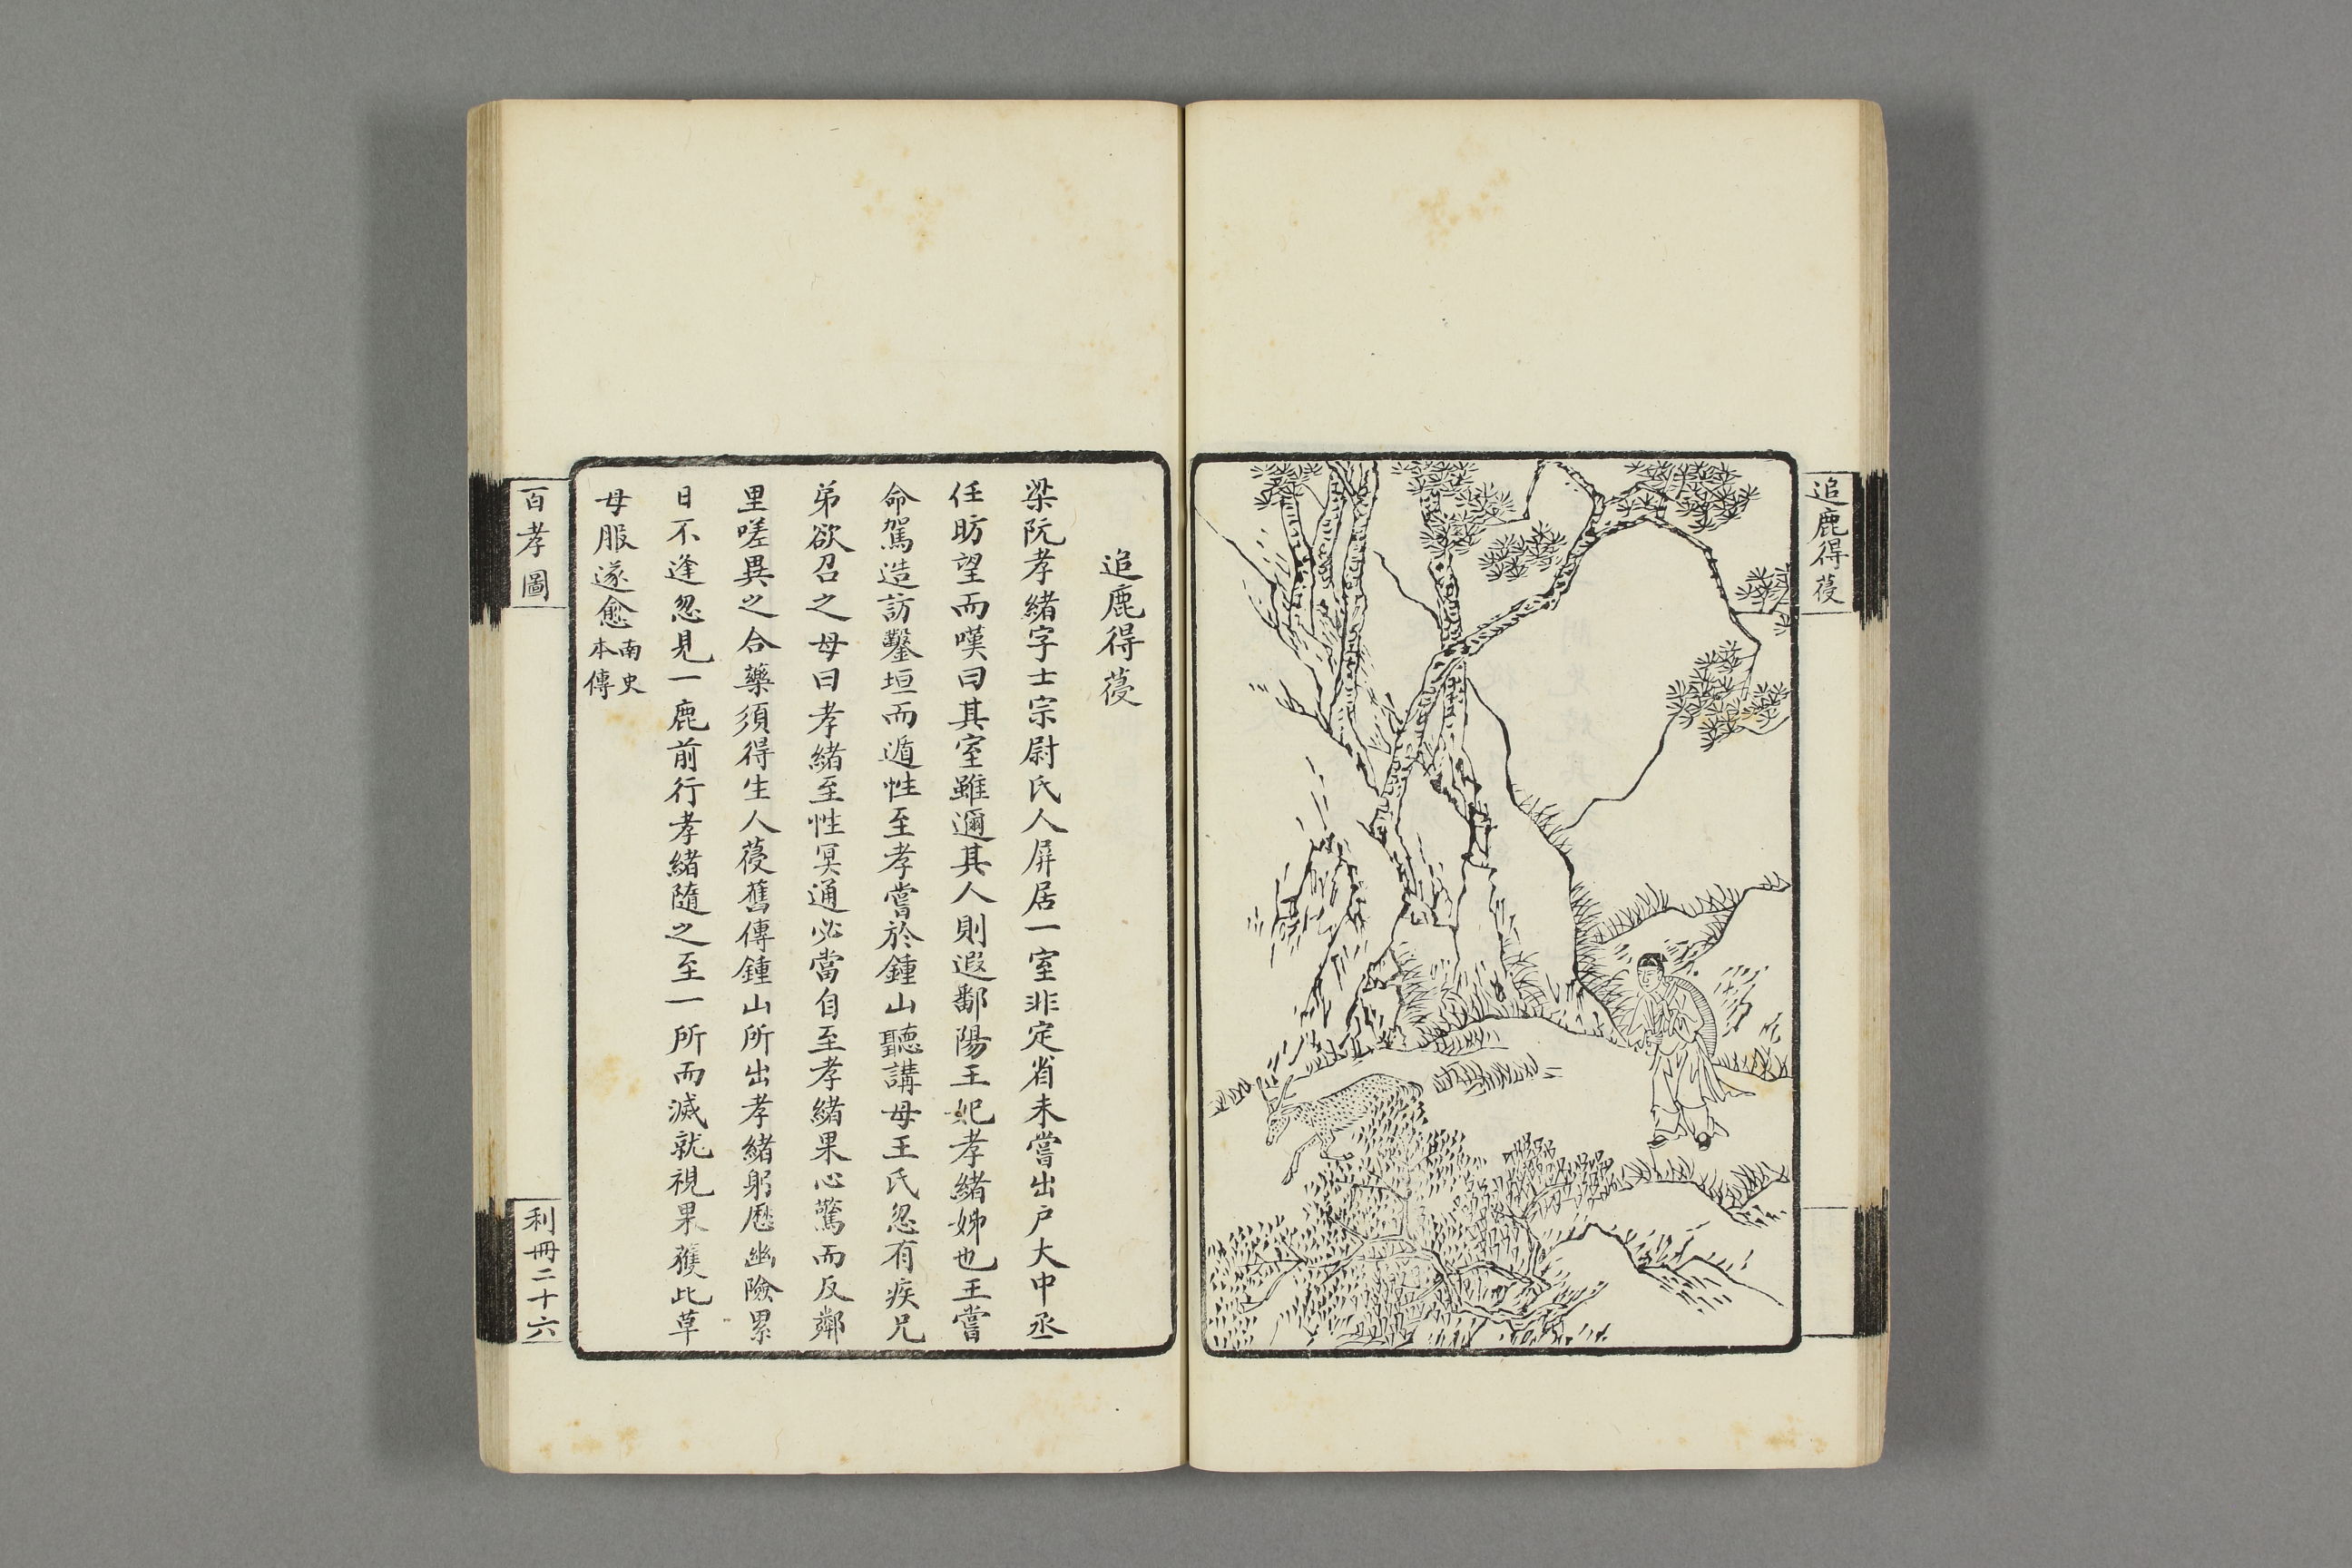 追鹿得葠
追鹿得葠
梁阮孝緒字士宗尉氏人屏居一室非定省未嘗出户大中丞
任昉望而嘆曰其室雖邇其人則遐鄱陽王妃孝緒姊也王嘗
命駕造訪鑿垣而遁性至孝嘗於鍾山聽講母王氏忽有疾兄
弟欲召之母曰孝緒至性冥通必當自至孝緒果心驚而反鄰
里嗟異之合藥須得生人葠舊傳鍾山所出孝緒躬歷幽險累
日不逢忽見一鹿前行孝緒隨之至一所而滅就視果獲此草
母服遂愈南史本傳
百孝圖
利冊二十六